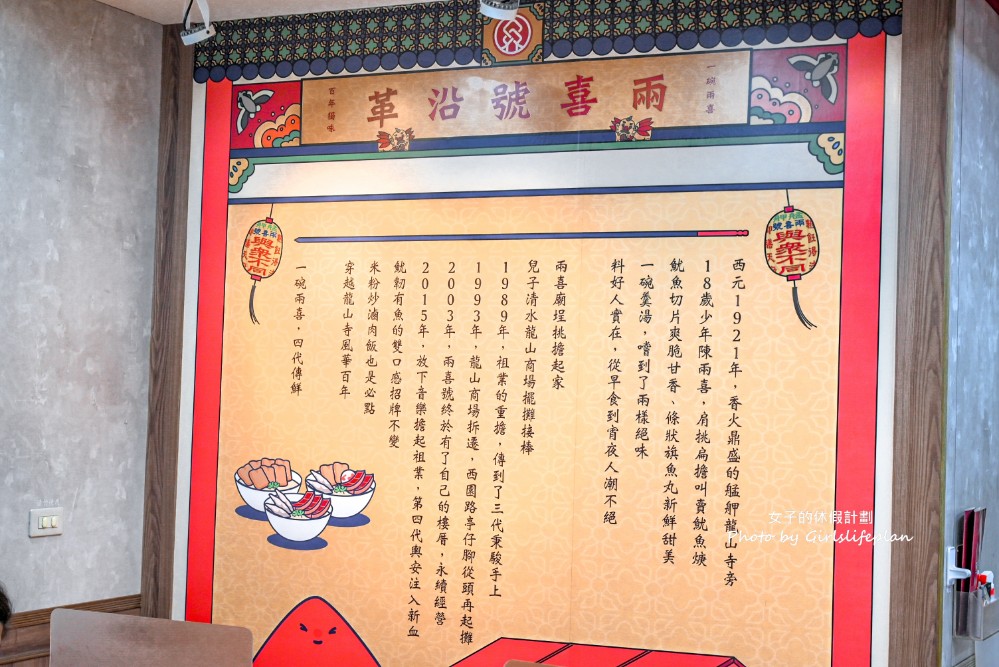 兩喜號沿革
一碗兩喜
百年獨味
西元1921年，香火鼎盛的艋舺龍山寺旁
18歲少年陳兩喜，肩挑扁擔叫賣魷魚焿
魷魚切片爽脆甘香、條狀旗魚丸新鮮甜美
一碗羹湯，嚐到了兩樣絕味
料好人實在，從早食到宵夜人潮不絕
兩喜廟埕挑擔起家
兒子清水龍山商場擺攤接棒
1989年，祖業的重擔，傳到了三代秉駿手上
1993年，龍山商場拆遷，西園路亭仔腳從頭再起攤
2003年，兩喜號終於有了自己的樓厝，永續經營
2015年，放下音樂擔起祖業，第四代輿安注入新血
魷韌有魚的雙口感招牌不變
米粉炒滷肉飯也是必點
穿越龍山寺風華百年
一碗兩喜，四代傳鮮
兩喜號
興眾不同
兩喜號
興眾不同
女子的休假計劃
Photo by Girlslifeslan